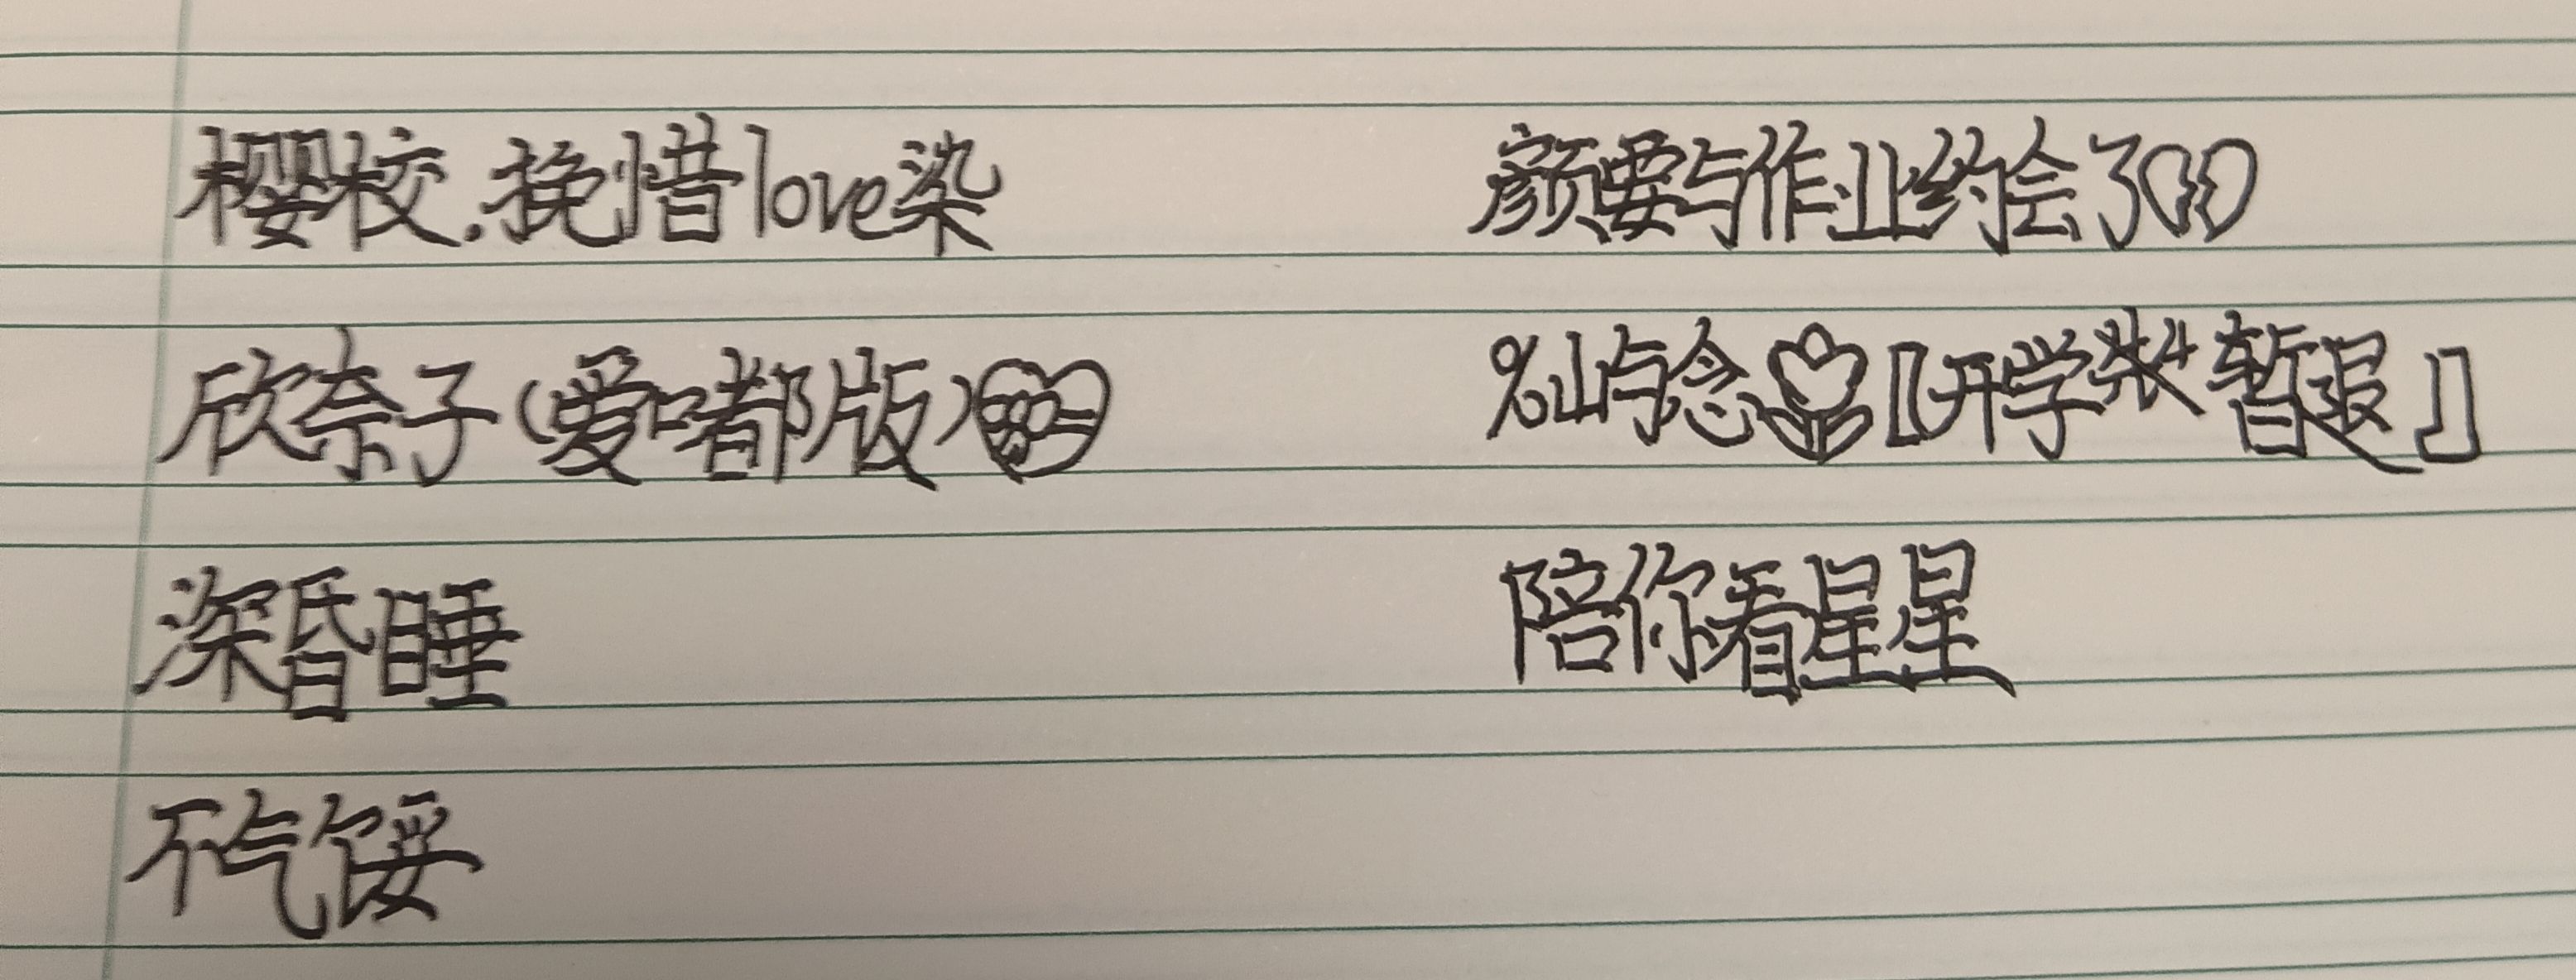 樱校.挽惜love染
颜要与作业约会了💔
欣奈子(爱嘟版)
%屿与念🌷【开学 暂退】
深昏睡
陪你看星星
不气馁